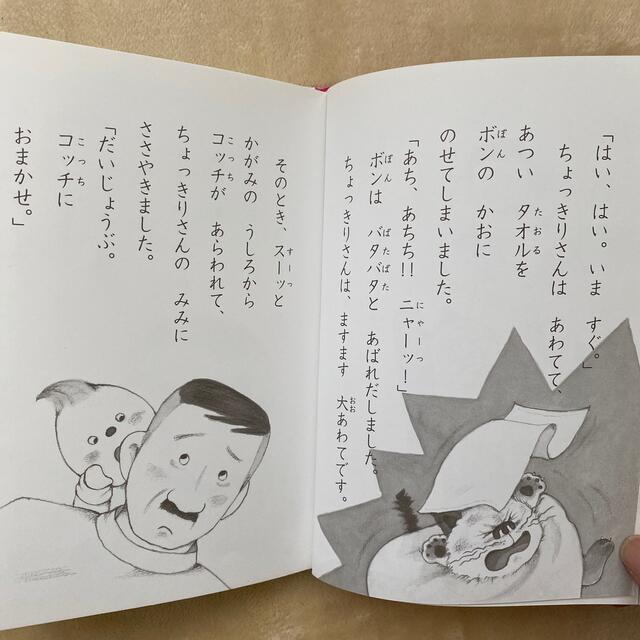 「はい、はい。いま すぐ。」
ちょっきりさんは あわてて、
あつい タオルを
ボンの かおに
のせてしまいました。
「あち、あちち!! ニャーッ!」
ボンは バタバタと あばれだしました。
ちょっきりさんは、ますます 大あわてです。
そのとき、スーッと
かがみの うしろから
コッチが あらわれて、
ちょっきりさんの みみに
ささやきました。
「だいじょうぶ。
コッチに
おまかせ。」